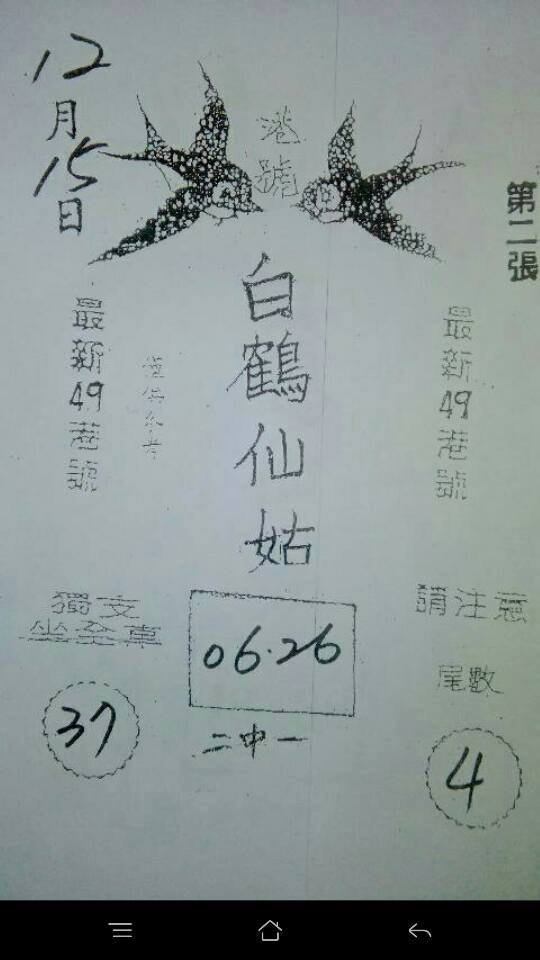 12月15日
港號
第二張
白鶴仙姑
最新49港號
僅供參考
最新49港號
獨支
坐全車
37
06.26
二中一
請注意
尾數
4